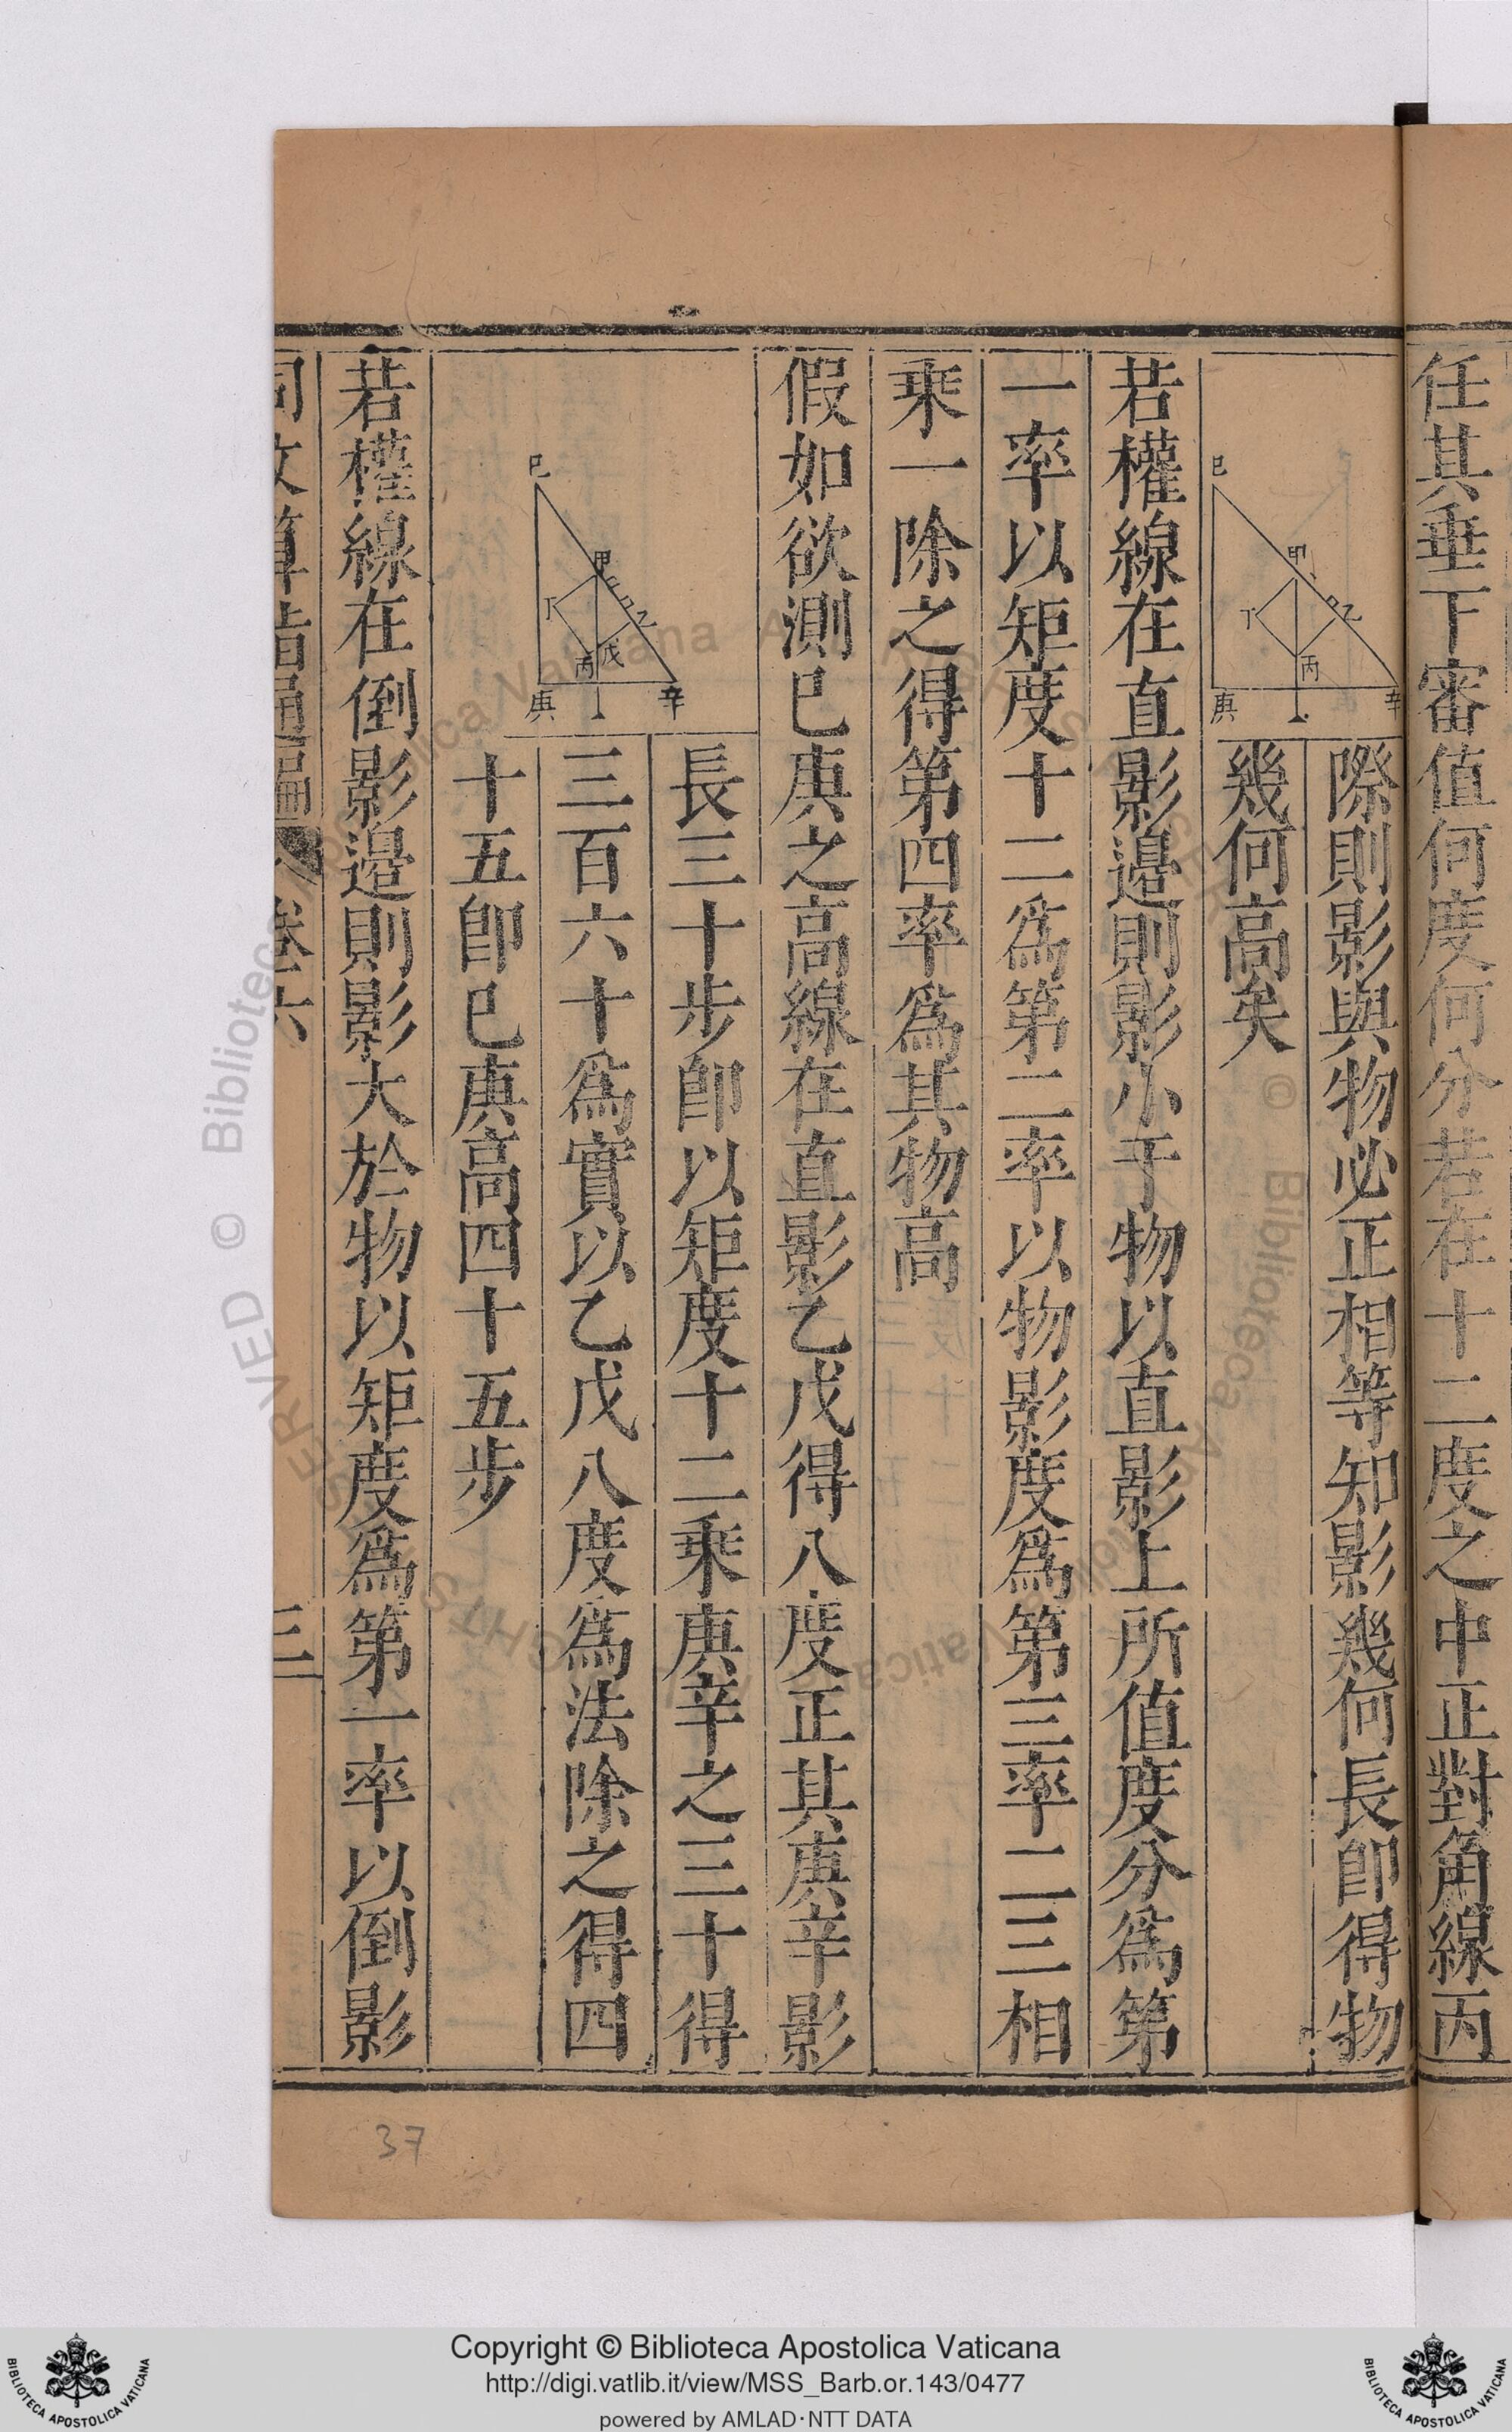 任其垂下審值何度何分若在十二度之中正對角線丙
際則影與物必正相等知影幾何長卽得物
幾何高矣
巳
甲
乙
丁
丙
庚
辛
若權線在直影邉則影小于物以直影上所值度分爲第
一率以矩度十二爲第二率以物影度爲第三率二三相
乘一除之得第四率爲其物高
假如欲測巳庚之高線在直影乙戊得八度正其庚辛影
長三十步卽以矩度十二乘庚辛之三十得
三百六十爲實以乙戊八度爲法除之得四
十五卽巳庚高四十五步
巳
甲
乙
丁
戊
丙
庚
辛
若權線在倒影邉則影大於物以矩度爲第一率以倒影
同文算指通編 卷六 三
37
Copyright © Biblioteca Apostolica Vaticana
http://digi.vatlib.it/view/MSS_Barb.or.143/0477
powered by AMLAD·NTT DATA
BIBLIOTECA APOSTOLICA VATICANA
BIBLIOTECA APOSTOLICA VATICANA